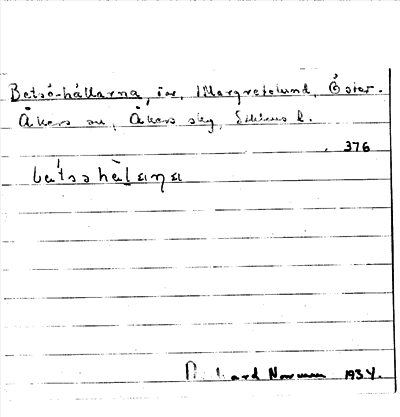 Betsö-hällarna, öar, Margretelund, Öster-
Åkers sn, Åkers skg, Sthlms l.
376
Rickard Norman 1934.